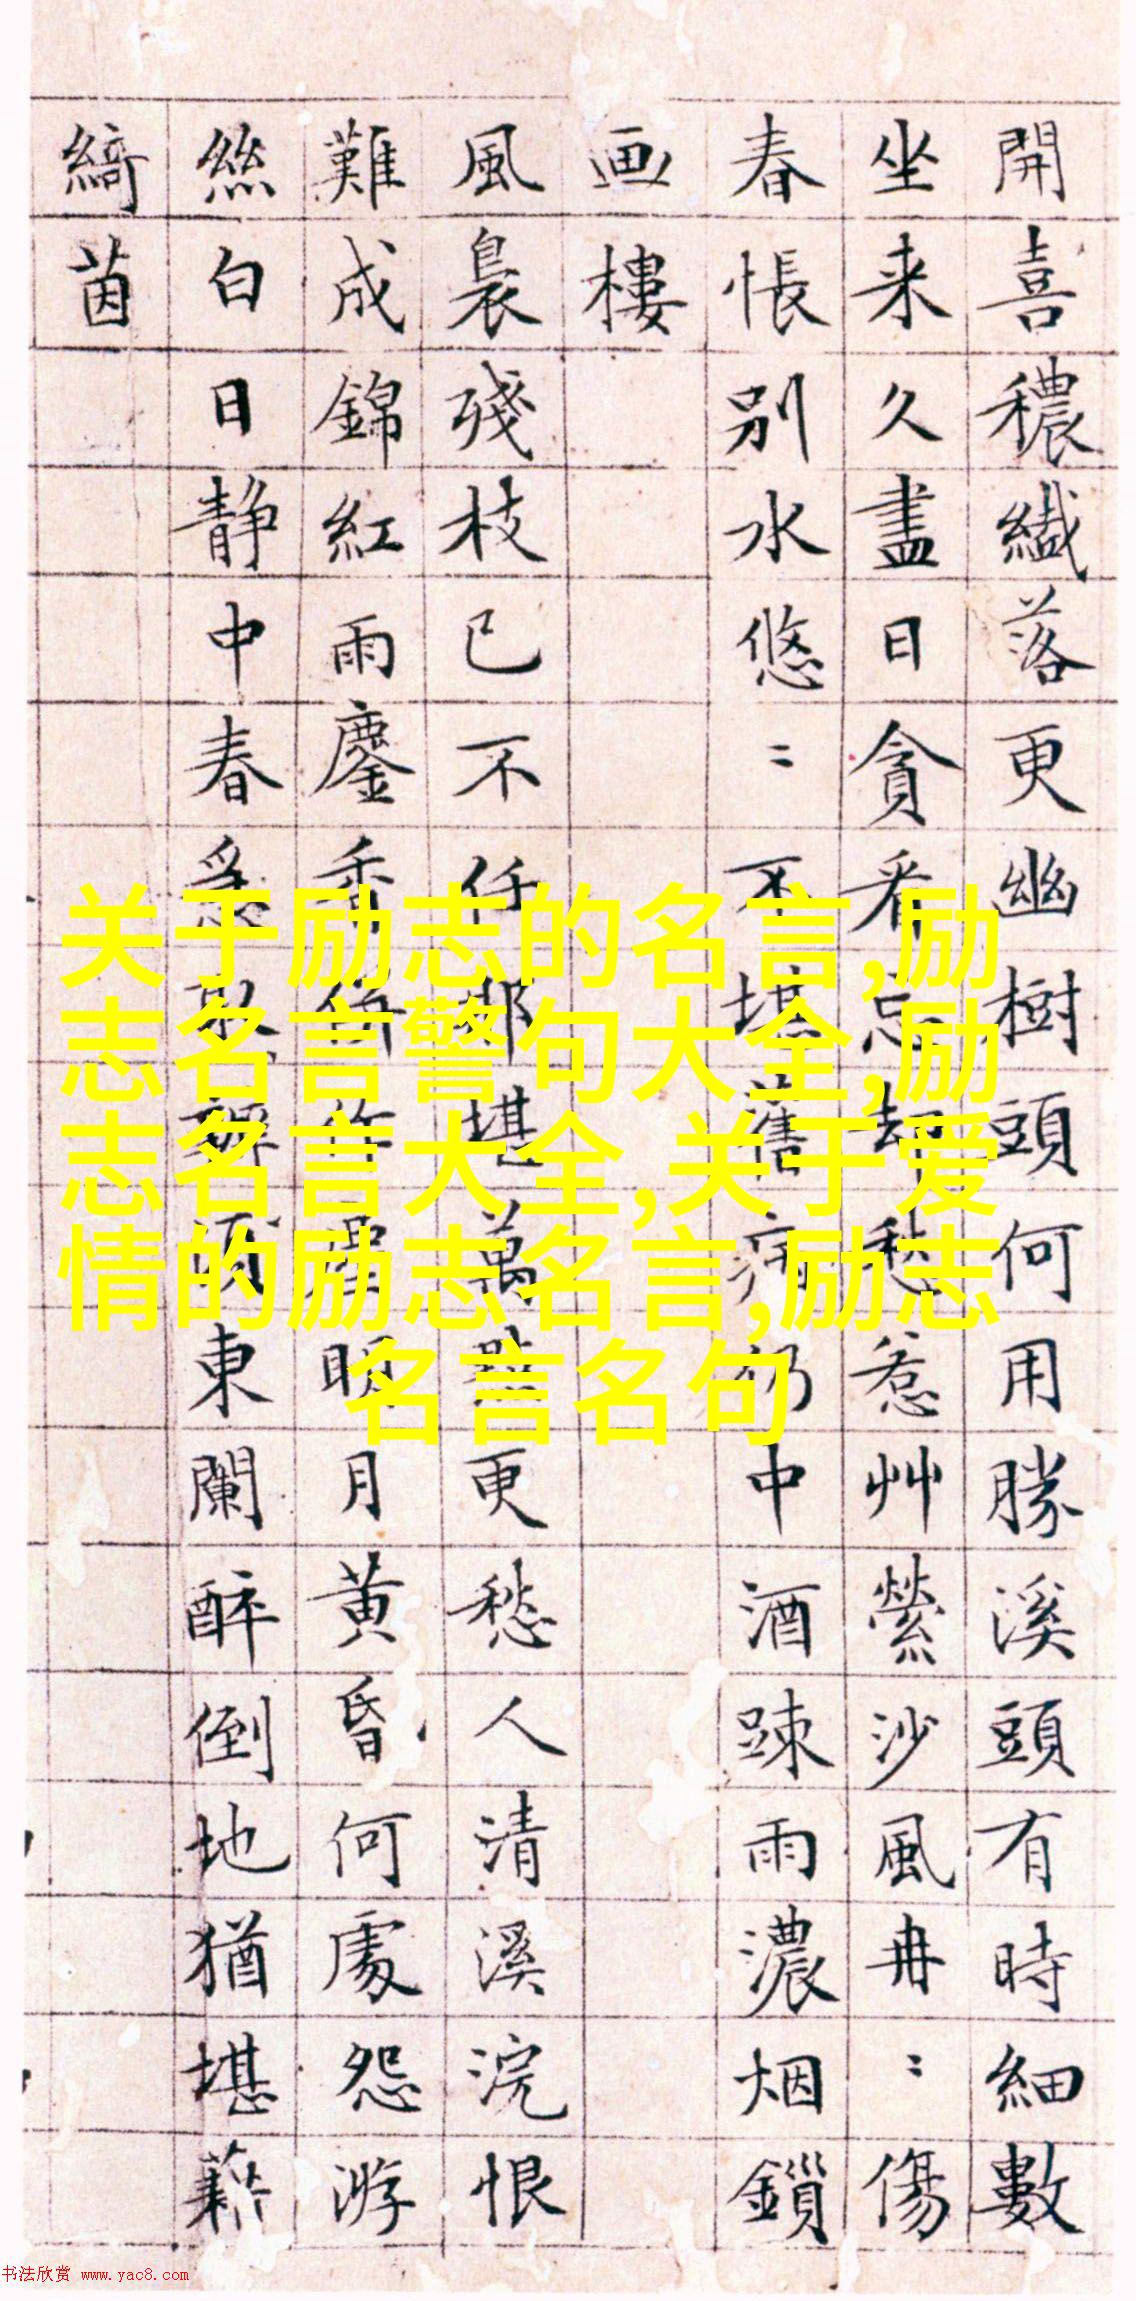 開喜穠纖落更幽樹頭何用勝溪頭有時細數
坐来久盡日貪看忘却愁惹艸縈沙風冉〻傷
春悵別水悠〻不堪舊病仍中酒踈雨濃烟鎖
画樓
風裊殘枝已不任那堪萬更愁人清溪浣恨
難成錦紅雨鏖香併作塵明月黄昏何處怨游
絲白日静中春急須東闌醉倒地猶堪藉
綺茵
关于励志的名言,励
志名言警句大全,励
志名言大全,关于爱
情的励志名言,励志
名言名句
书法欣赏 www.yac8.com